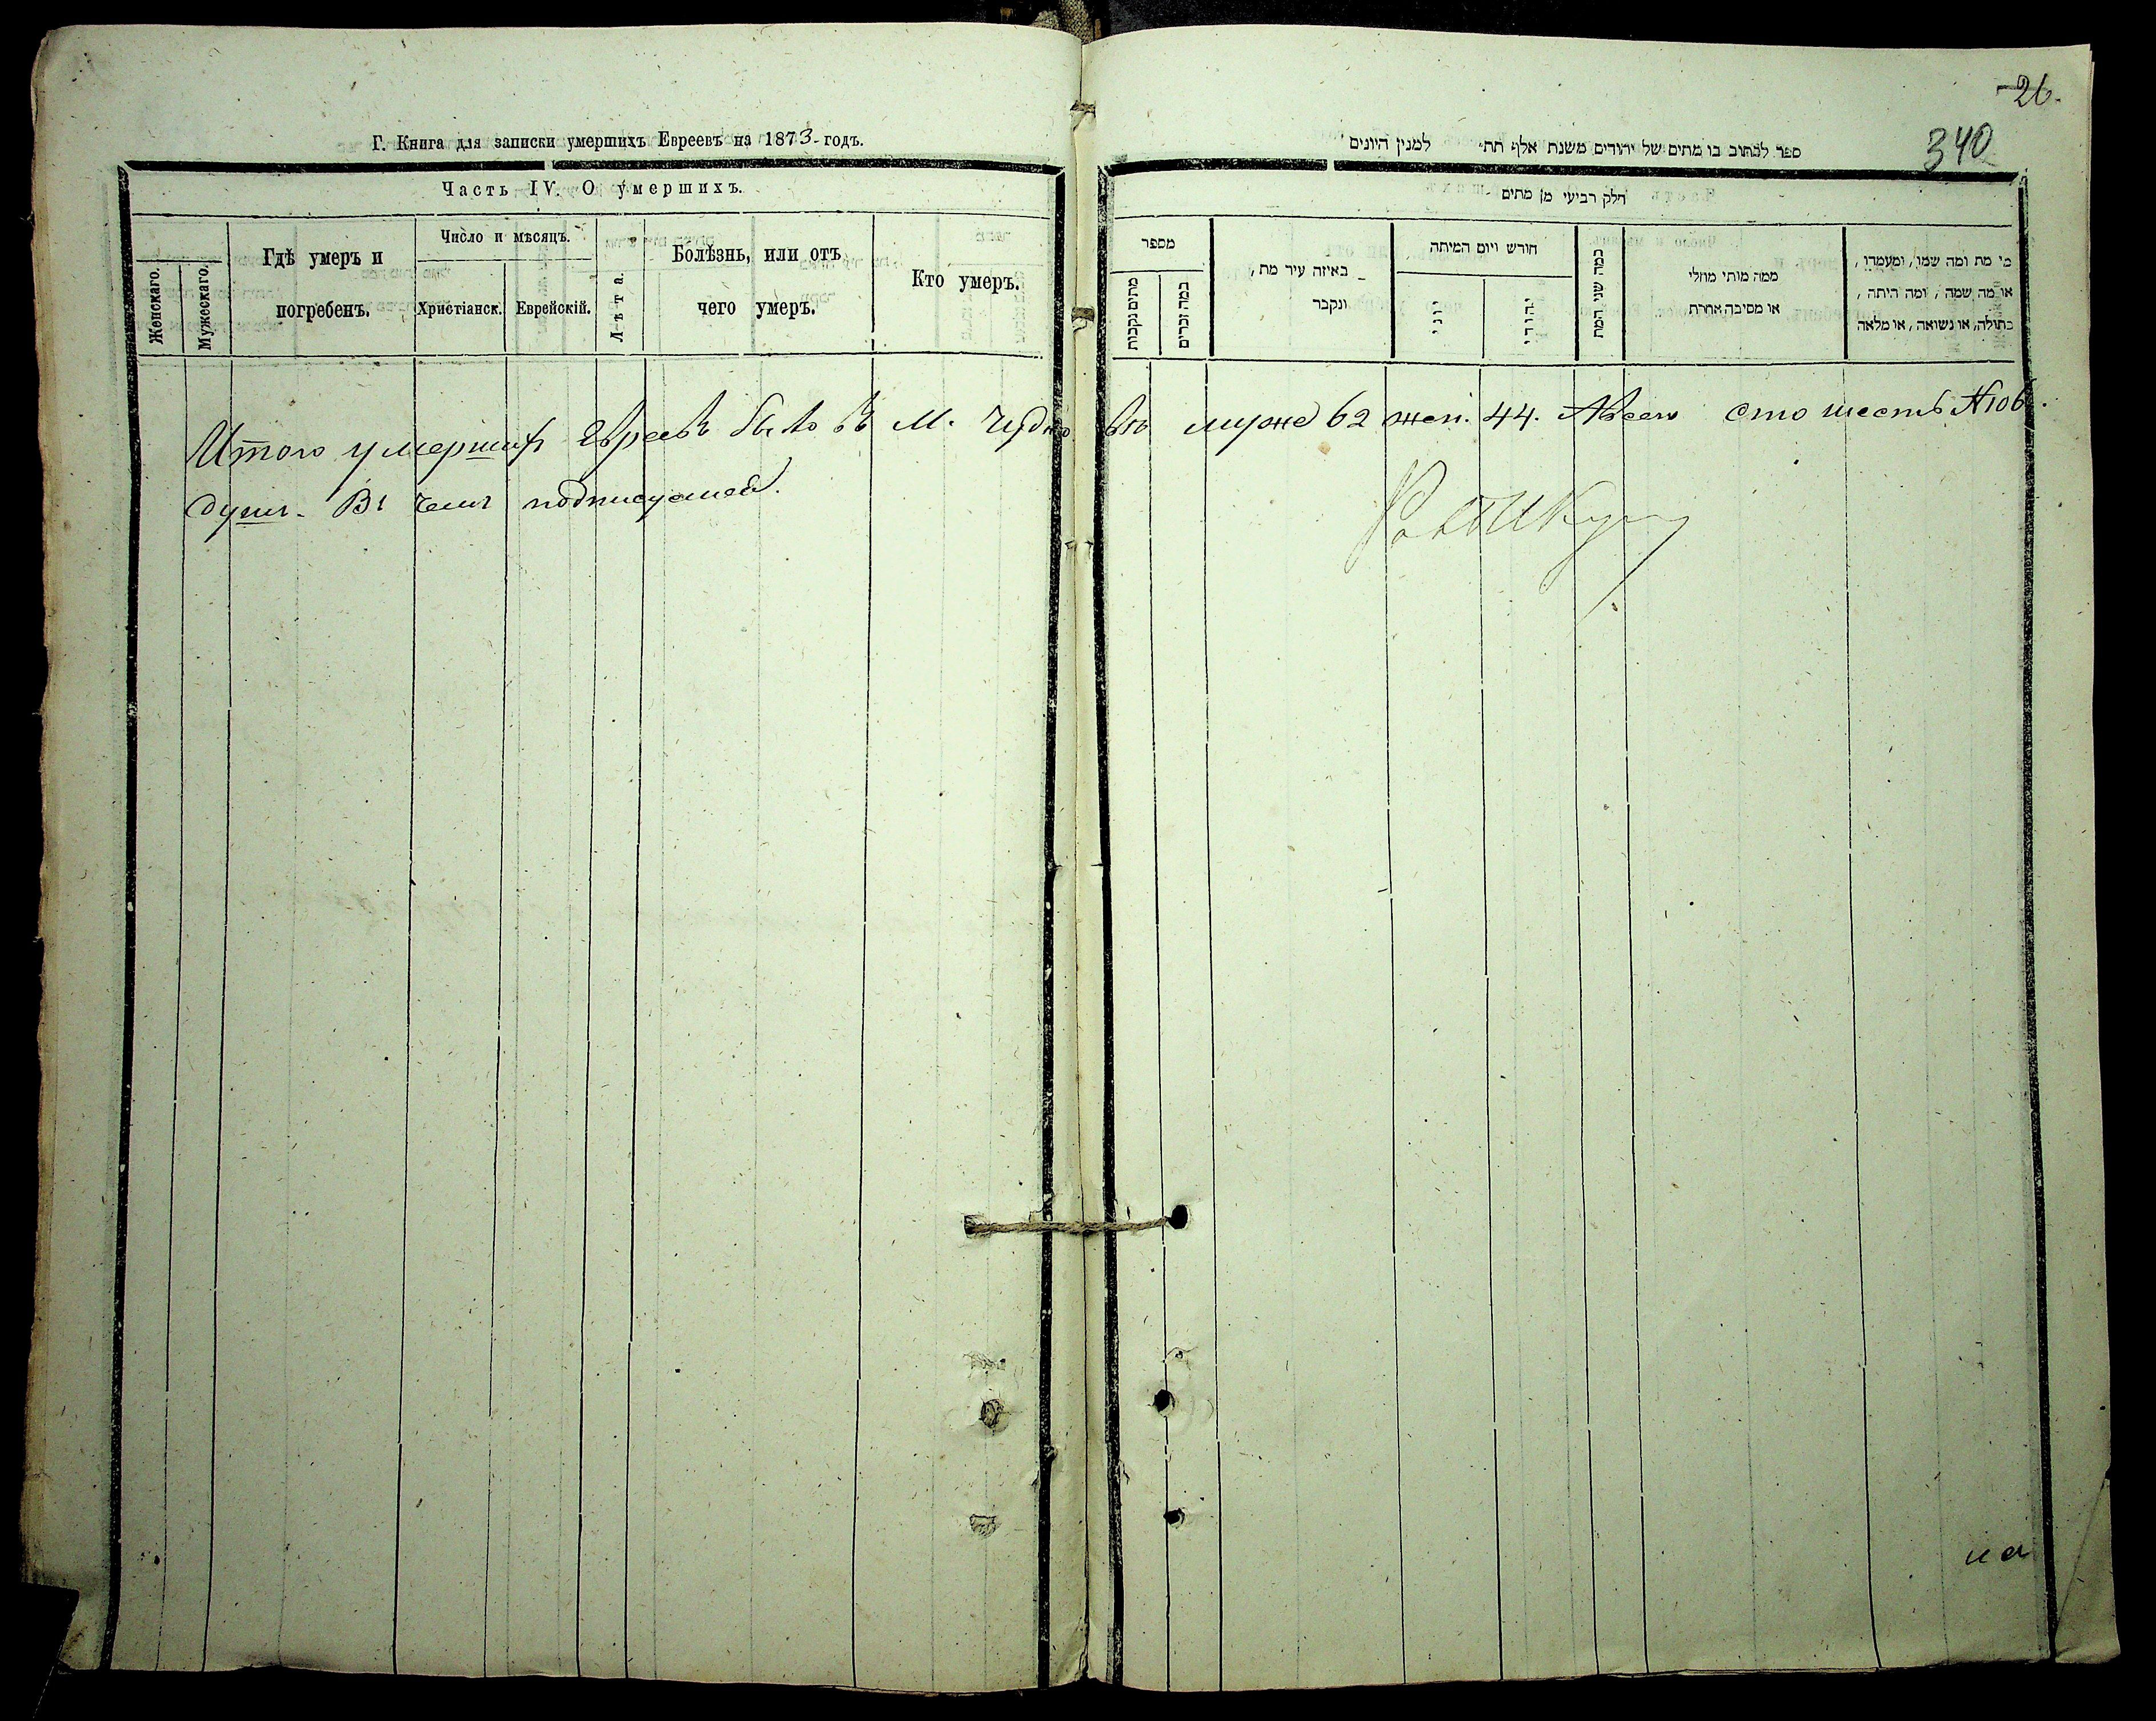 Г. Книга для записки умершихъ Евреевъ на 1873-годъ.
Часть IV. О умершихъ.
Женскаго.
Мужескаго.
Гдѣ умеръ и
погребенъ.
Число и мѣсяцъ.
Христіанск.
Еврейскій.
Лѣта.
Болѣзнь, или отъ
чего умеръ.
Кто умеръ.
26.
340
ספר לכתוב בו מתים של יהודים משנת אלף תת״ למנין היונים
חלק רביעי מן מתים
מספר
מתים נקבות
כמה זכרים
באיזה עיר מת,
ונקבר
חורש ויום המיתה
יוני
יהודי
כמה שני המת
ממה מותי מחלי
או מסיבה אחרת
מי מת ומה שמו, ומעמדו,
או מה שמה, ומה היתה,
בתולה, או נשואה, או מלאה
Итого умершихъ Евреевъ было въ М. Чудновѣ муже 62 жен. 44. Авсего сто шесть №106.
душъ. Въ чемъ подписуемся.
на